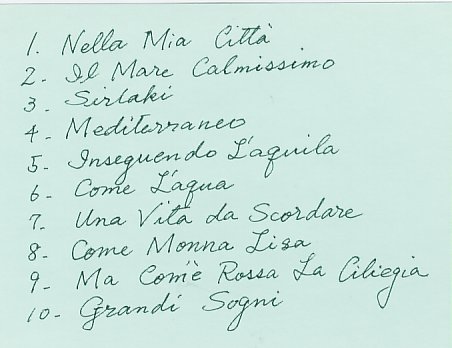 1. Nella Mia Città
2. Il Mare Calmissimo
3. Sirlaki
4. Mediterraneo
5. Inseguendo L'aquila
6. Come L'aqua
7. Una Vita da Scordare
8. Come Monna Lisa
9. Ma Com'è Rossa La Ciliegia
10. Grandi Sogni